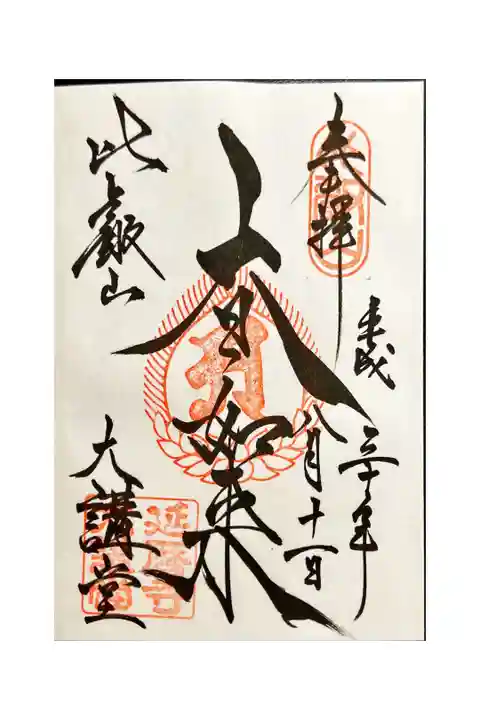 奉拝
平成三十年
八月十一日
大日如来
比叡山
大講堂
延暦寺